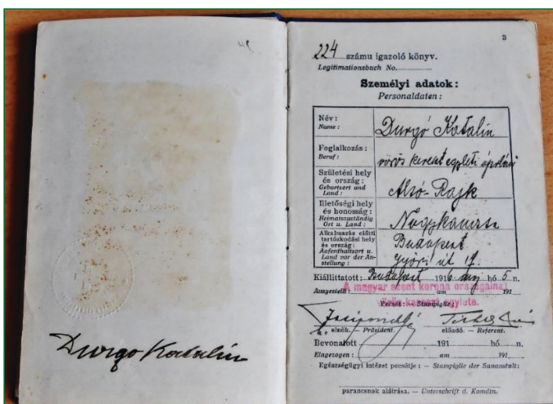 Durgo Katalin
3
224 számu igazoló könyv.
Legitimationsbuch No.
Személyi adatok:
Personaldaten:
Név: Durgó Katalin
Name:
Foglalkozás: vörös kereszt egyleti ápolónő
Beruf:
Születési hely és ország: Alsó-Rajk
Geburtsort und Land:
Illetőségi hely és honosság: Nagykanizsa
Heimatzuständig Ort u. Land:
Alkalmazás előtti tartózkodási hely és ország: Budapest
Aufenthaltsort u. Land vor der Anstellung: Győri út 17.
Kiállittatott: Budapest 1916 aug hó 5 n.
Ausgestellt: am 191
A magyar szent korona országainak
vörös-kereszt egylete.
elnök. — Präsident. előadó. — Referent.
Bevonatott 191 hó n.
Eingezogen: am 191
Egészségügyi intézet pecsétje: — Stampiglie der Sananstalt:
parancsnok aláirása. — Unterschrift d. Komdtn.